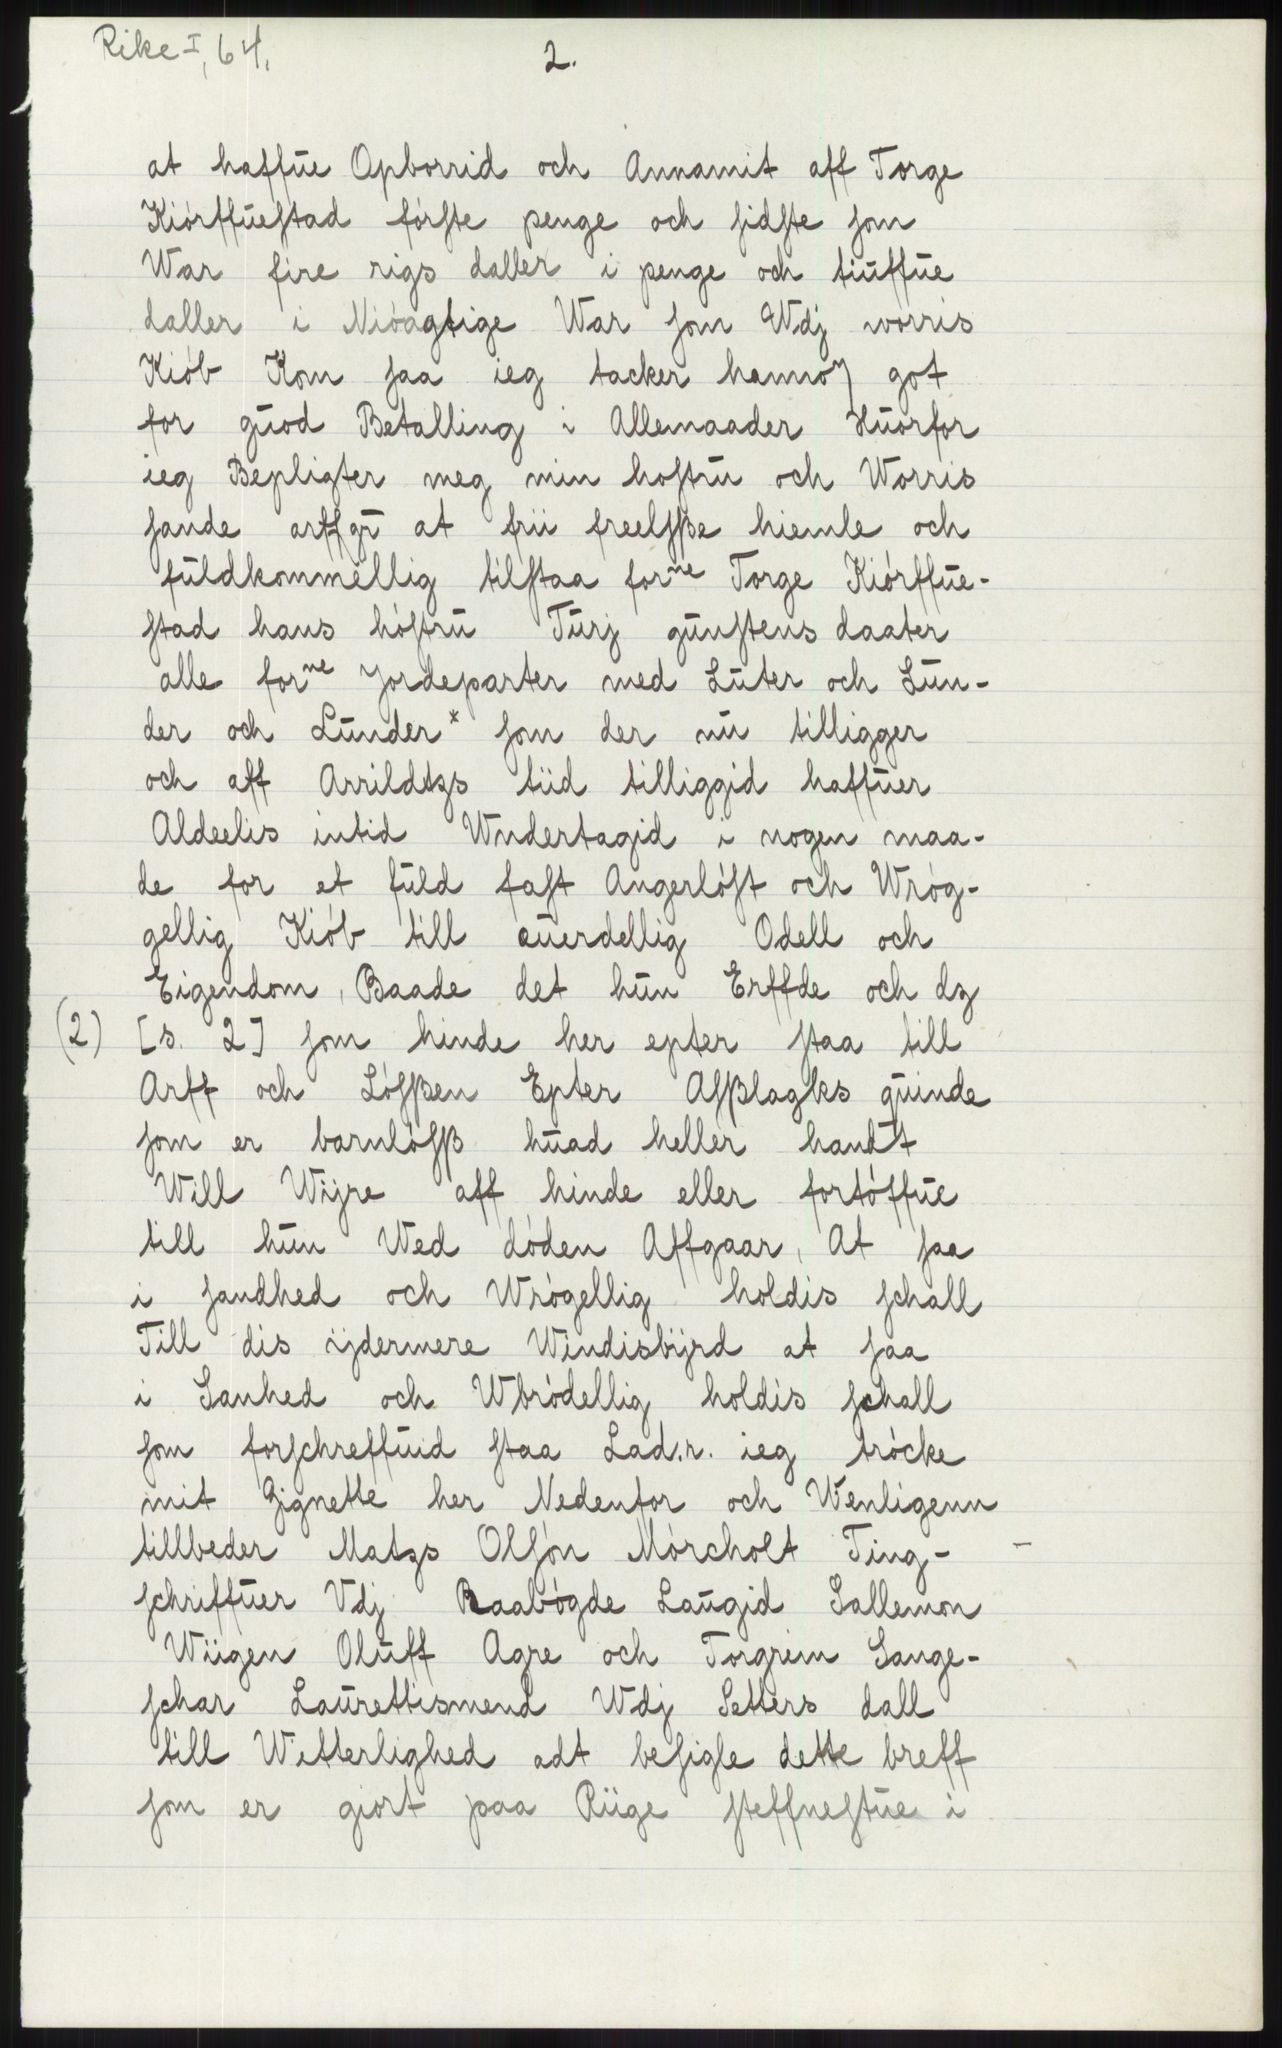 Rike I, 64.
2.
at haffūe Opborrid och Annamit aff Torge
Kiórffūestad fórste penge och sidste som
War fire rigs daller i penge och tiūffūe
daller i Nióagtige War som Wdj worris
Kiób Kom saa ieg tacker hannom got
for gūod Betalling i Allemaader Hūorfor
ieg Bepligter meg min hostrū och Worris
sande arffgr at frii freelsße hiemle och
fūldkommellig tilstaa forne Torge Kiórffūe-
stad hans hóstrū Tūrj gūnstens daater
alle forne Jordeparter med Lūter och Lūn-
der och Lūnder* som der nū tilligger
och aff Arrildtzs tiid tilliggid haffūer
Aldeelis intid Wndertagid i nogen maa-
de for et fūld fast Angerlóst och Wróg-
gellig Kiób till eūerdellig Odell och
Eigendom, Baade det hūn Erffde och dz
(2) [s. 2] som hinde her epter staa till
Arff och Lósßen Epter Asßlagks qūinde
som er barnlósß hūad heller handt
Will Wijre aff hinde eller fortóffūe
till hūn Wed dóden Affgaar, At saa
i sandhed och Wrógellig holdis schall
Till dis ijdermere Windisbijrd at saa
i Sanhed och Wbródellig holdis schall
som forschreffūid staa Lad.r. ieg trócke
mit Zignette her Nedenfor och Wenligenn
tillbeder Matzs Olsón Mórcholt Ting-
schriffūer Vdj Raabógde Laūgid Sallemon
Wiigen Olūff Agre och Torgrim Sange-
schar Laūrettismend Wdj Setters dall
till Witterlighed adt besigle dette breff
som er giort paa Riige steffnestūe i